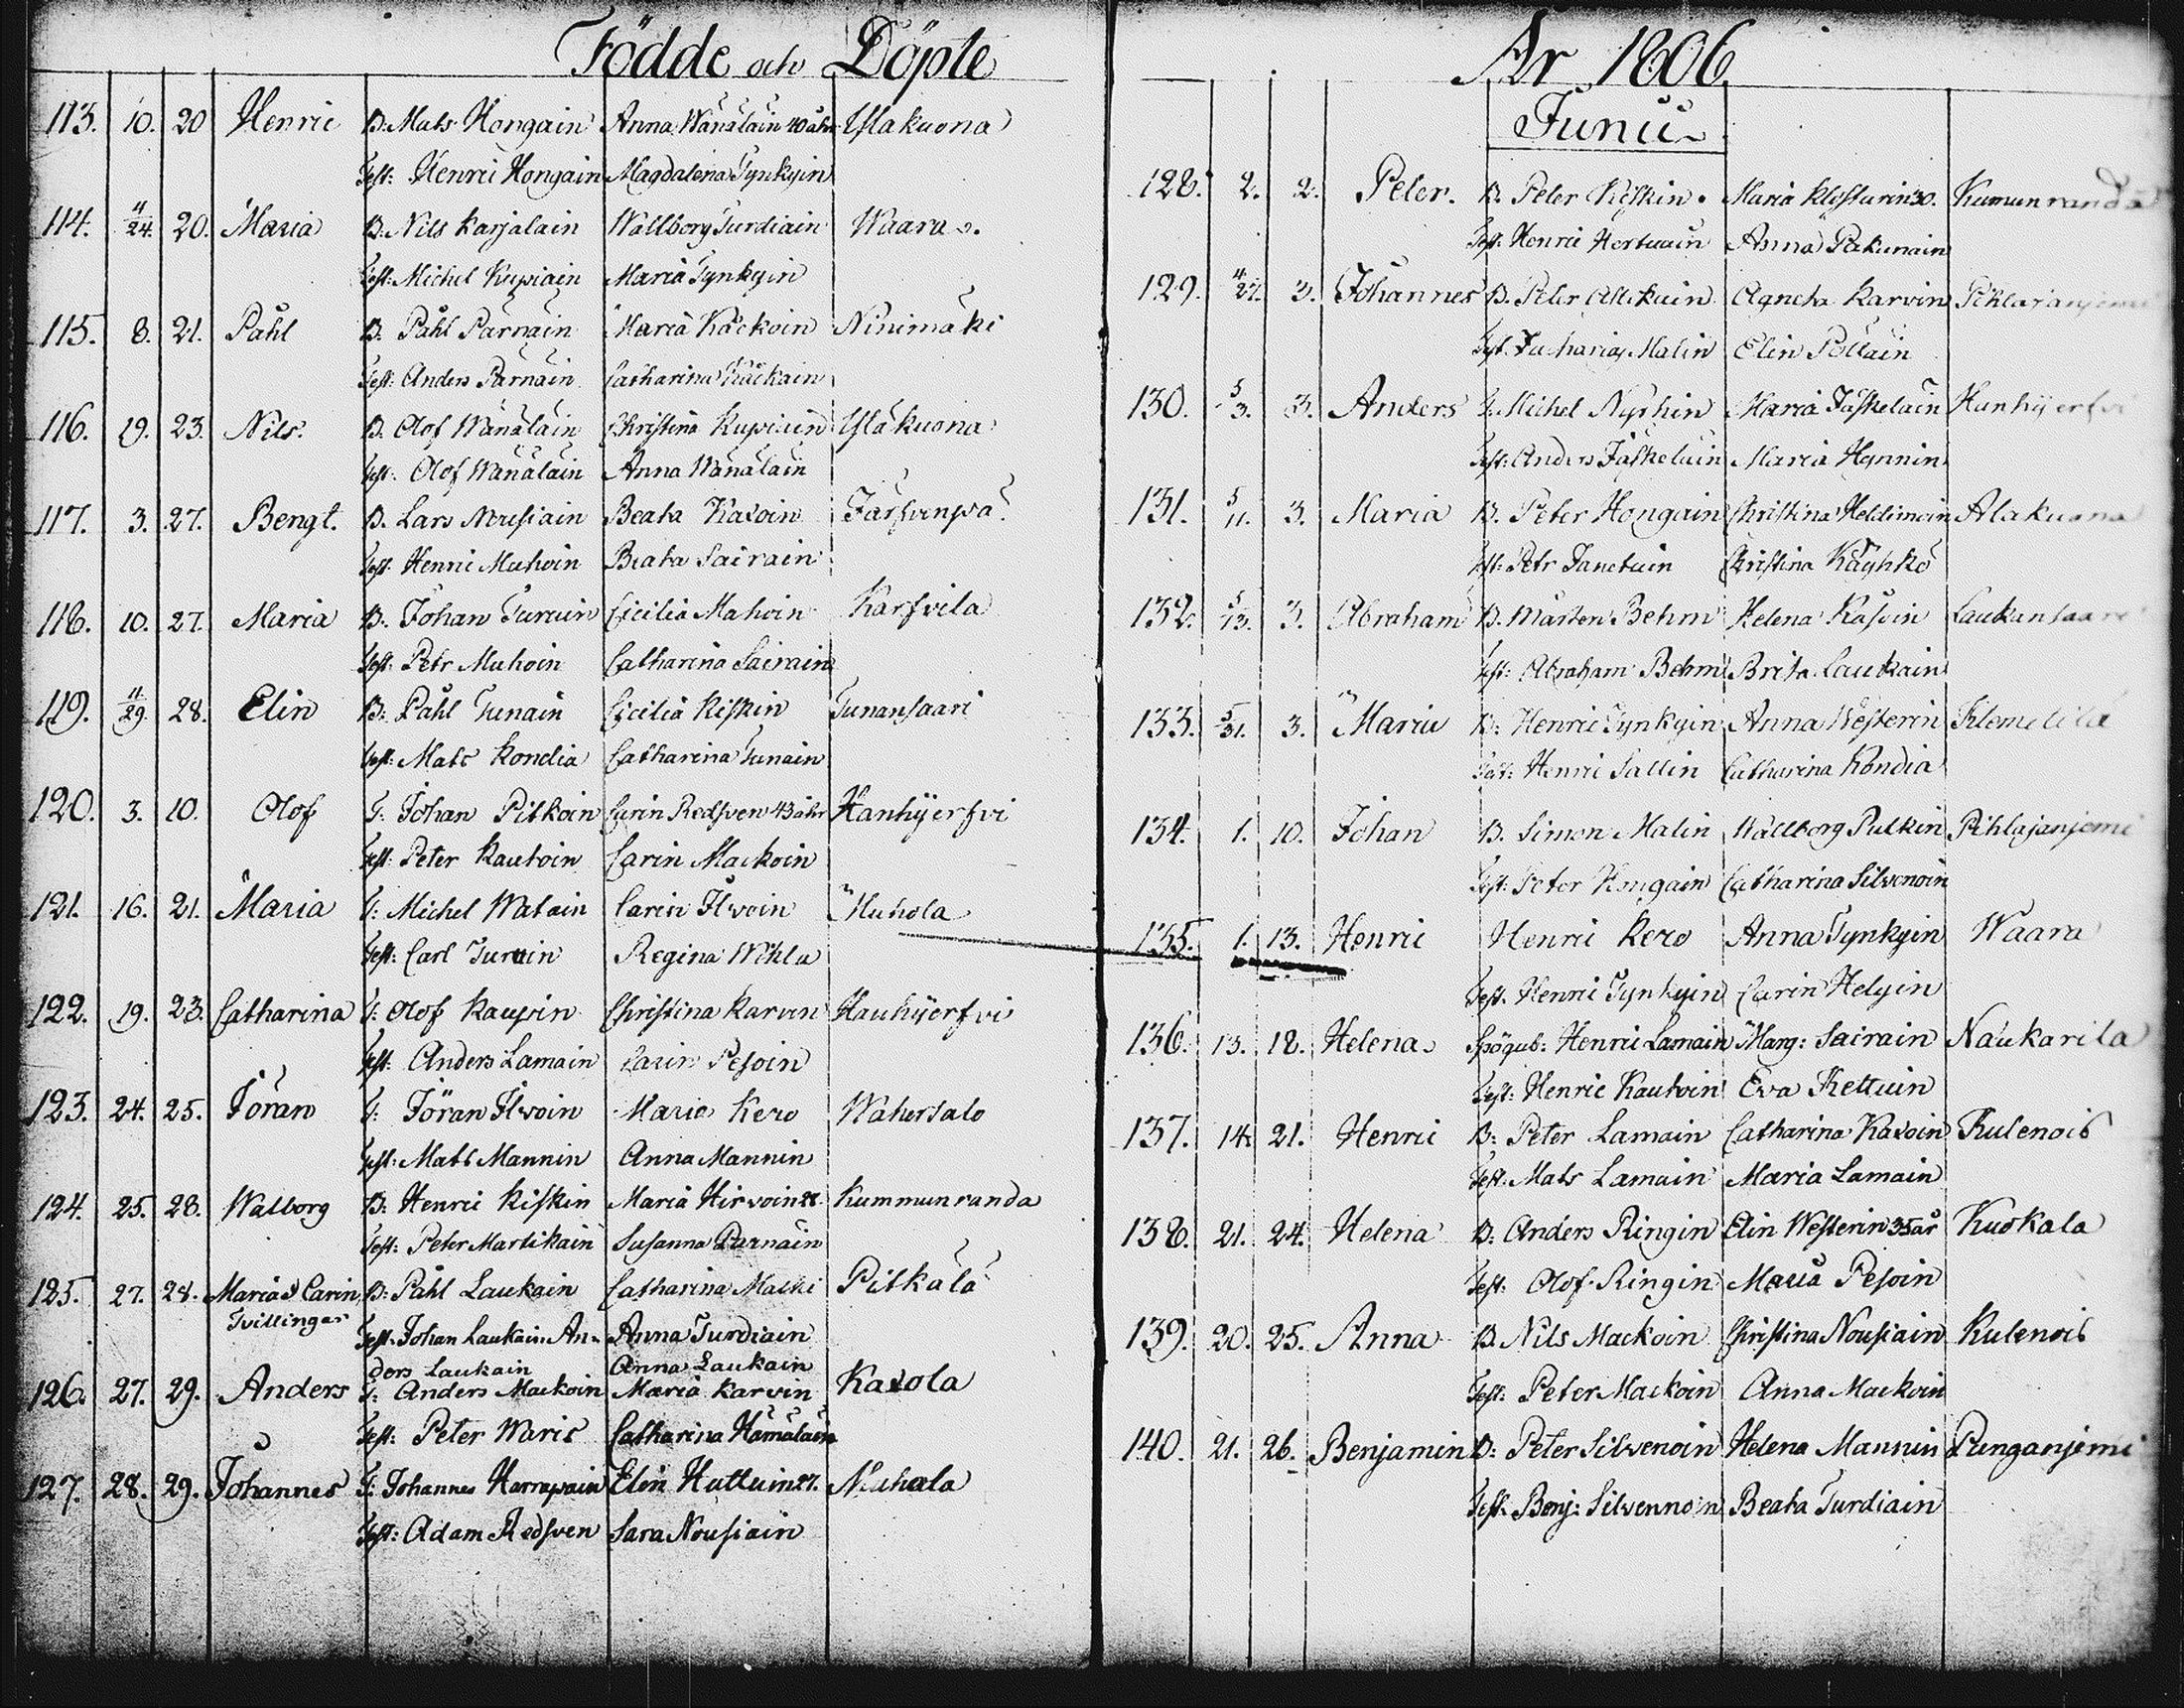 Födde och Döpte
113. 10. 20 Henric B. Mats Hongain Anna Wänäläin 40 åhr Ylakuona
Test: Henric Hongain Magdalena Tynkyin
114. 4/24. 20. Maria B. Nils Karjalain Wallborg Turdiain Waara
Test: Michel Kupiain Maria Tynkyin
115. 8. 21. Påhl B. Påhl Parnain Maria Käckoin Ninimäki
Test: Anders Pärnäin Catharina
116. 19. 23. Nils. B. Olof Wänäläin Christina Kupiain Yläkuona
Test: Olof Wänäläin Anna Wänäläin
117. 3. 27. Bengt. B. Lars Nousiain Beata Kasoin
Test: Henric Muhoin Beata Sairain
118. 10. 27. Maria B. Johan Turuin Cicilia Mahoin Karfvila
Test: Petr Muhoin Catharina Sairain
119. 11/29. 28. Elin B. Påhl Tunain Cicilia Kiskin Tunansaari
Test: Mats Kondia Catharina Tunain
120. 3. 10. Olof T. Johan Pitkoin Carin Redsven 43 åhr Hanhijerfvi
Test: Peter Kautoin Carin Mackoin
121. 16. 21. Maria T: Michel Matain Carin Ilvoin Muhola
Test: Carl Turuin Regina Wihla
122. 19. 23. Catharina T: Olof Kaupin Christina Karvin Hauhijerfvi
Test: Anders Lamain Carin Pesoin
123. 24. 25. Jöran T: Jöran Ilvoin Maria Kero Wahersalo
Test: Mats Mannin Anna Mannin
124. 25. 28. Walborg B: Henric Kiskin Maria Hirvoin 28. Kummunranda
Test: Peter Martikain Susanna Parnain
125. 27. 28. Maria & Carin B: Påhl Laukain Catharina Matki Pitkälä
Tvillingar Test. Johan Laukain An- Anna Turdiain
ders Laukain Anna Laukain
126. 27. 29. Anders T: Anders Mackoin Maria Karvin Kasola
Test: Peter Waris Catharina Hämäläin
127. 28. 29. Johannes T: Johannes Harrapain Elin Huttuin 27. Muhola
Test: Adam Redsven Sara Nousiain
År 1806
Junii
128. 2. 2. Peter. B. Peter Kiskin. Maria 30. Kumunranda
Test. Henric Anna Pakunain
129. 4/27. 3. Johannes B. Peter Agneta Karvin
Test. Zacharias Malin Elin Pöllain
130. 5/3. 3. Anders T. Michel Nyrhin Maria Jäskelain Hanhijerfvi
Test: Anders Jäskelain Maria Hynnin
131. 5/11. 3. Maria B. Peter Hongain Christina Heldimoin Alakuona
Test: Petr Christina Käyhkö
132. 5/13. 3. Abraham B. Mårten Behm Helena Kasoin Laukansaari
Test: Abraham Behm Brita Laukain
133. 5/31. 3. Maria B: Henric Tynkyin Anna Westerin Klemetilä
Test: Henric Sallin Catharina Kondia
134. 1. 10. Johan B. Simon Malin Wallborg Pulkin Pihlajanjemi
Test: Peter Hongain Catharina Silvenoin
135. 1. 13. Henric Henric Kero Anna Tynkyin Waara
Test. Henric Tynkyin Carin Helyin
136. 13. 18. Helena Spögub: Henric Lamain Marg: Sairain Naukarila
Test: Henric Kautoin Eva Kettuin
137. 14. 21. Henric B: Peter Lamain Catharina Kasoin Kulenois
Test. Mats Lamain Maria Lamain
138. 21. 24. Helena B: Anders Ringin Elin Westerin 35 år Kuokala
Test: Olof Ringin Maria Pesoin
139. 20. 25. Anna B. Nils Mackoin Christina Nousiain Kulenois
Test: Peter Mackoin Anna Mackoin
140. 21. 26. Benjamin B: Peter Silvenoin Helena Mannin Punganjemi
Test. Benj: Silvennoin Beata Turdiain